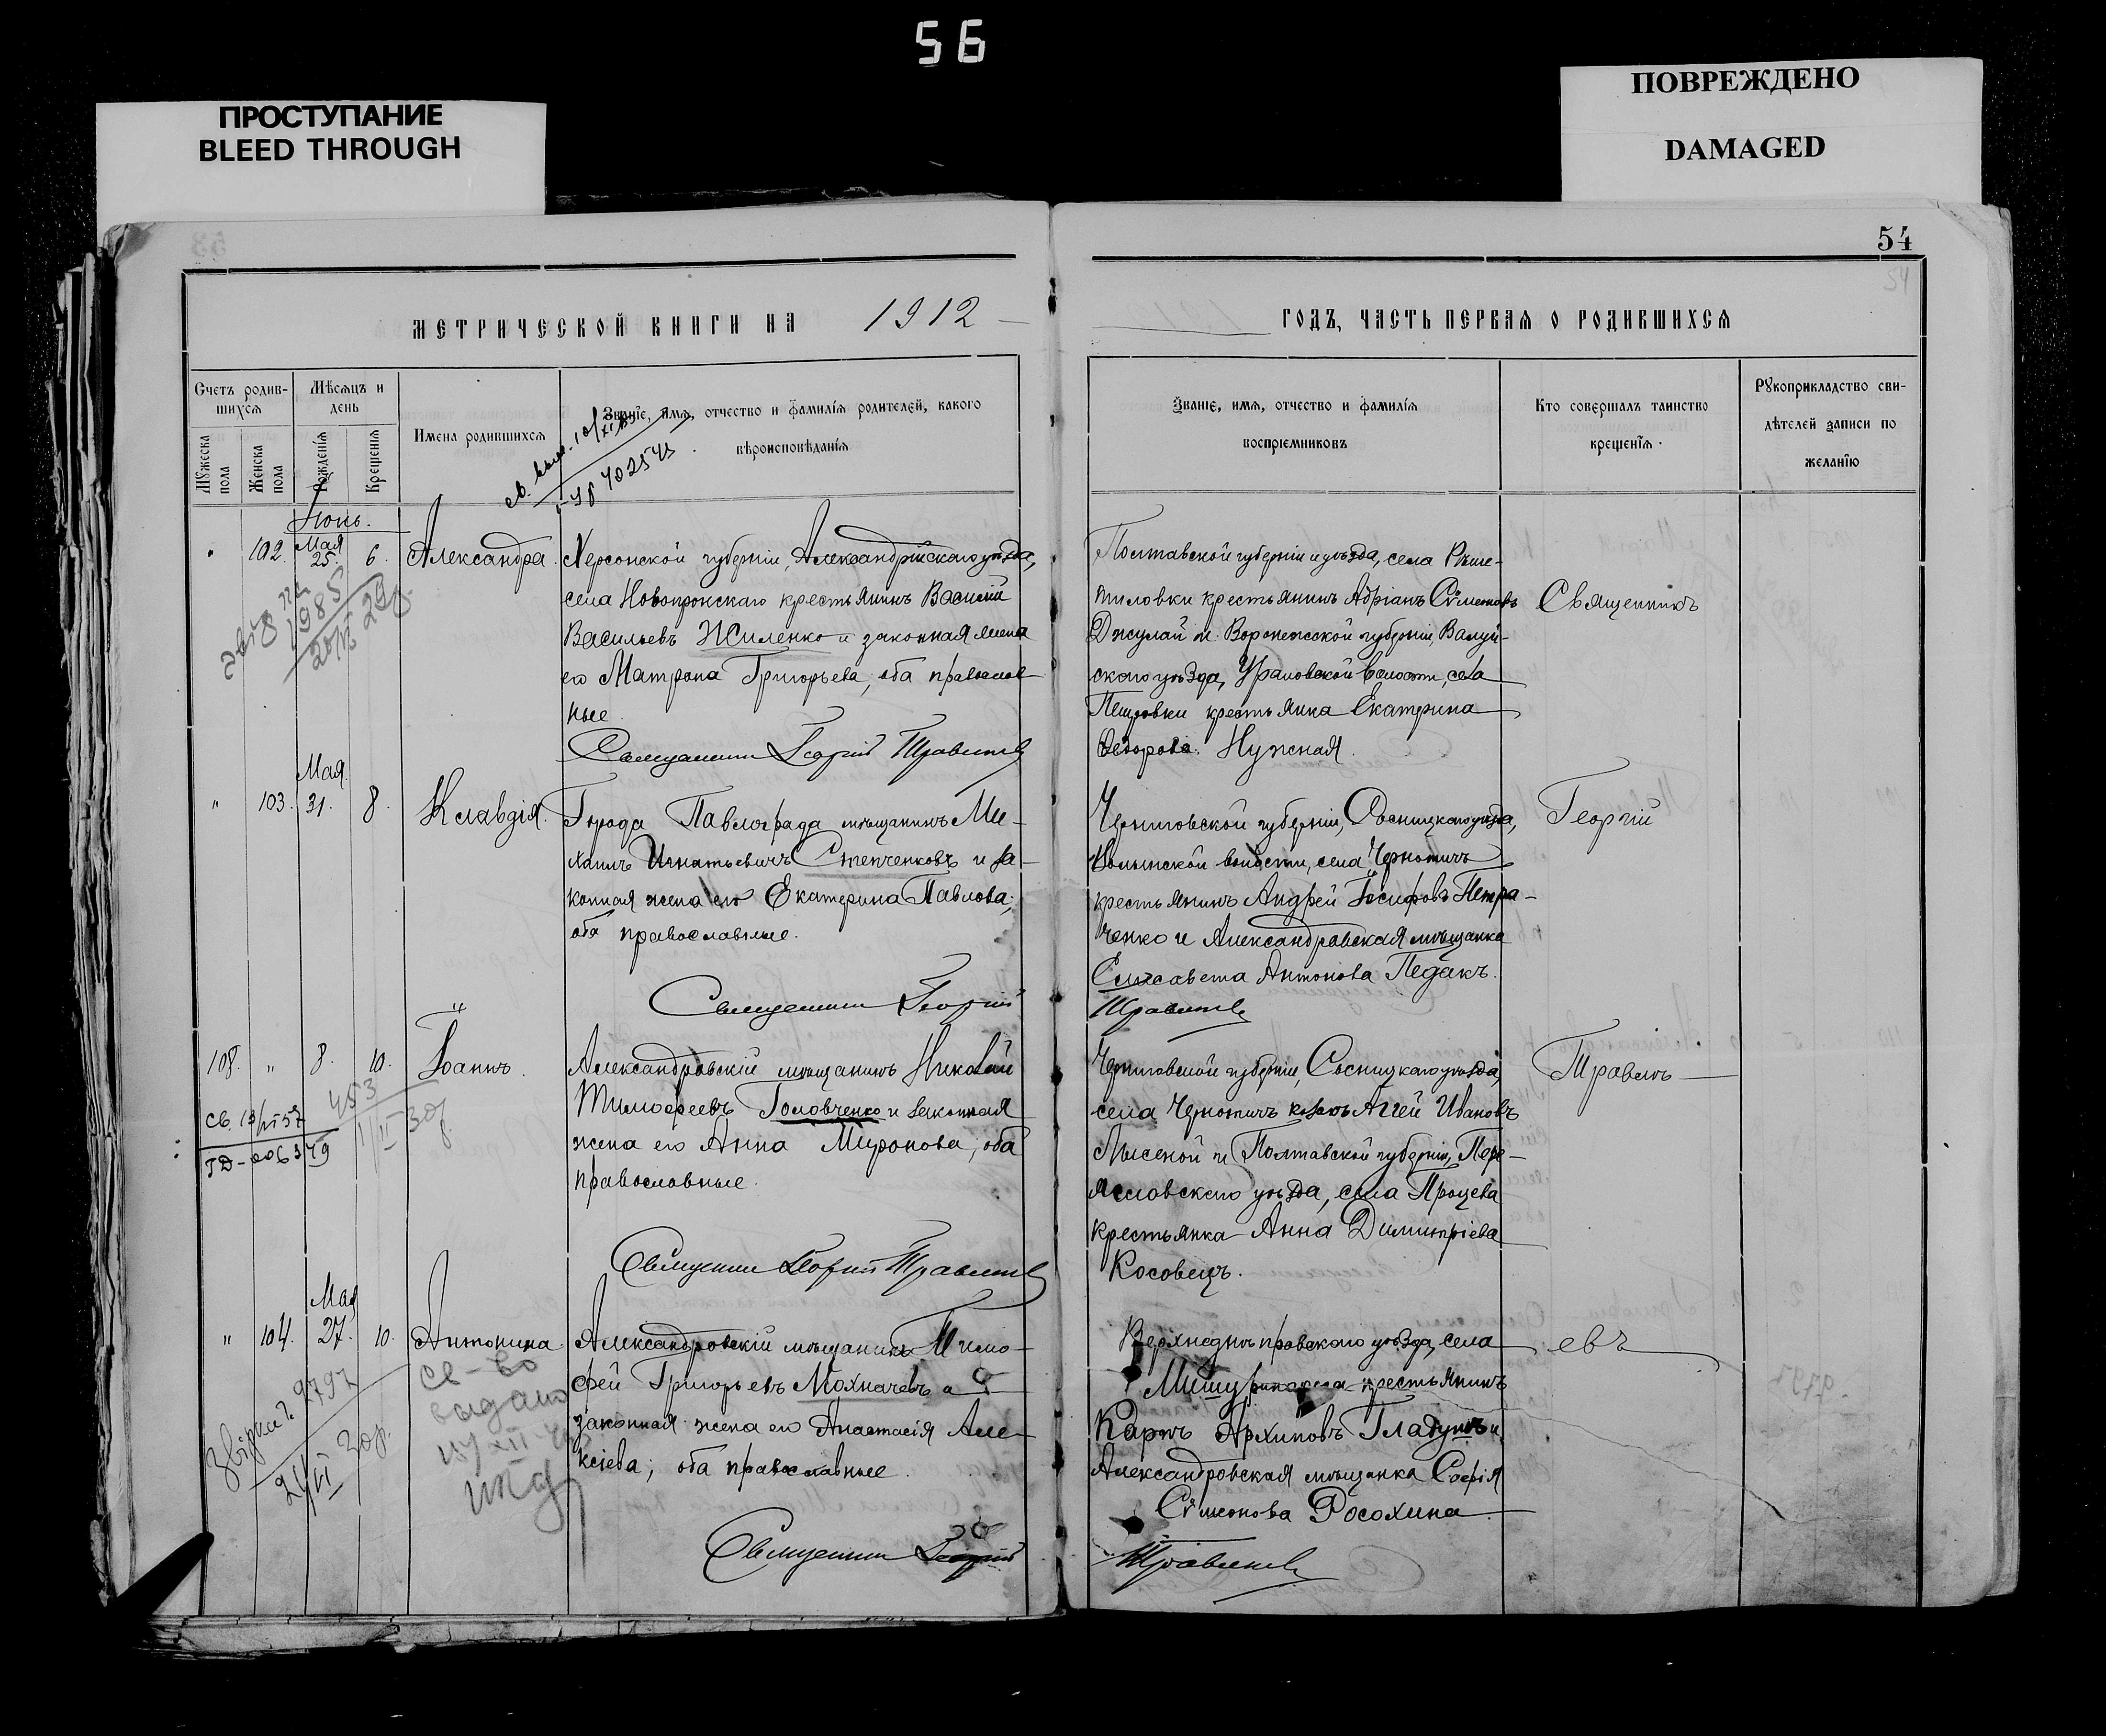 56
ПРОСТУПАНИЕ
BLEED THROUGH
ПОВРЕЖДЕНО
DAMAGED
54
54
МЕТРИЧЕСКОЙ КНИГИ НА 1912
ГОДЪ, ЧАСТЬ ПЕРВАЯ О РОДИВШИХСЯ
Счетъ родив-
шихся
Мужеска пола
Женска пола
Мѣсяцъ и
день
Рожденія
Крещенія
Имена родившихся
Званіе, имя, отчество и фамилія родителей, какого
вѣроисповѣданія
Званіе, имя, отчество и фамилія
воспріемниковъ
Кто совершалъ таинство
крещенія
Рукоприкладство сви-
дѣтелей записи по
желанію
Іюнь.
" 102. Мая 25. 6. Александра
Херсонской губерніи, Александрійскаго уѣзда,
села Новопражскаго крестьянинъ Василій
Васильевъ Жиленко и законная жена
его Матрона Григорьева, оба православ-
ные.
Священникъ Георгій Травлевъ
Полтавской губерніи и уѣзда, села Рѣше-
тиловки крестьянинъ Адріанъ Сѵмеоновъ
Джулай и Воронежской губерніи, Валуй-
скаго уѣзда, Ураковской волости, села
Петровки крестьянка Екатерина
Ѳедорова Нужная.
Священникъ
" 103. Мая 31. 8. Клавдія.
Города Павлограда мѣщанинъ Ми-
хаилъ Игнатьевичъ Степченковъ и за-
конная жена его Екатерина Павлова;
оба православные.
Священникъ Георгій
Черниговской губерніи, Сосницкаго уѣзда,
волости, села Чернотичъ
крестьянинъ Андрей Іосифовъ Петра-
ченко и Александровская мѣщанка
Елисавета Антонова Педакъ.
Георгій
108. " 8. 10. Іоаннъ.
Александровскій мѣщанинъ Николай
Тимоѳеевъ Головченко и законная
жена его Анна Миронова, оба
православные.
Священникъ Георгій
св. 13/VI 57
ГД-006379
453
Черниговской губерніи, Сосницкаго уѣзда,
села Чернотичъ Аггей Ивановъ
и Полтавской губерніи, Пере-
яславскаго уѣзда, села Процева
крестьянка Анна Димитріева
Косовецъ.
" 104. Мая 27. 10. Антонина
Александровскій мѣщанинъ Тимо-
фей Григорьевъ Мохначевъ и
законная жена его Анастасія Але-
ксіева; оба православные.
Священникъ Георгій
св-во
выдано
2797
Верхнеднѣпровскаго уѣзда, села
крестьянинъ
Карпъ Архиповъ Гладунъ и
Александровская мѣщанка Софія
Сѵмеонова Росохина
евъ